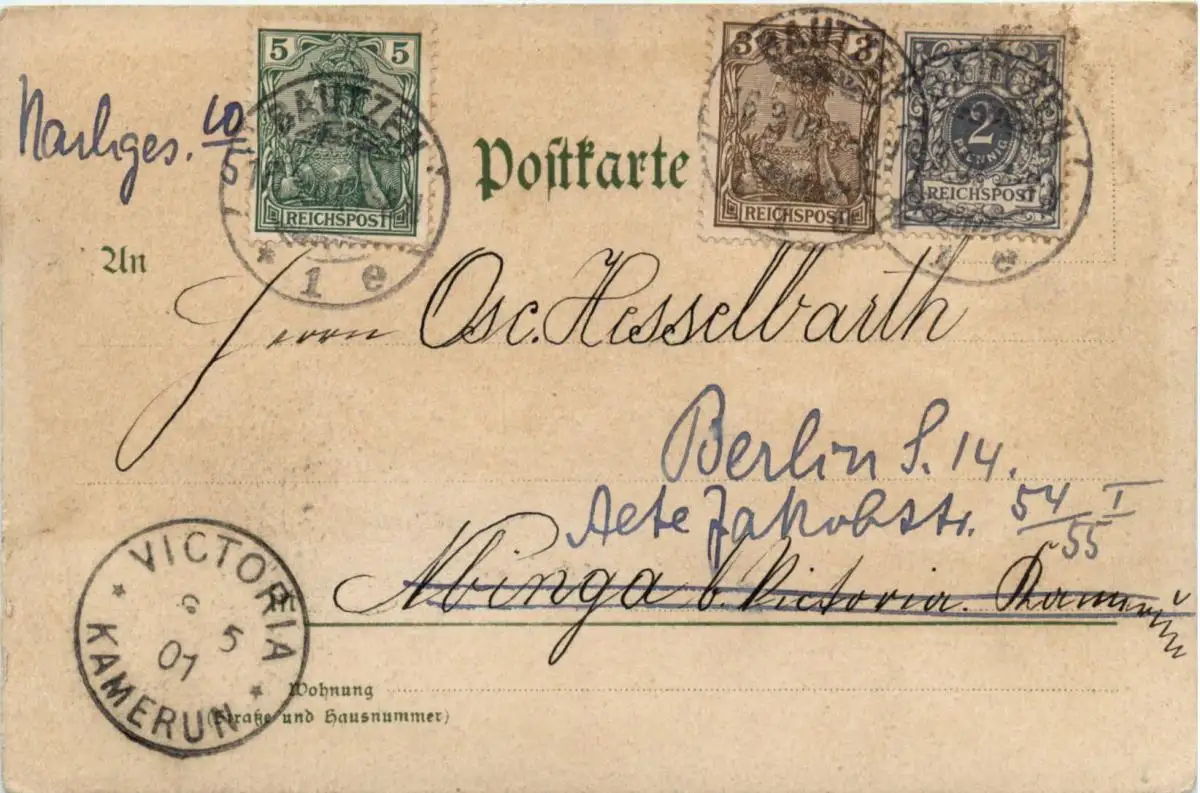 5 5
REICHSPOST
3 3
REICHSPOST
2
PFENNIG
REICHSPOST
BAUTZEN
* 1 e
BAUTZEN
BAUTZEN
1 e
Nachges. 10/5
Postkarte
An
Herrn Osc. Hesselbarth
Berlin S. 14.
Alte Jakobstr. 54/55 I
b. Victoria. Kamerun
in
VICTORIA
5
07
* KAMERUN *
Wohnung
(Straße und Hausnummer)